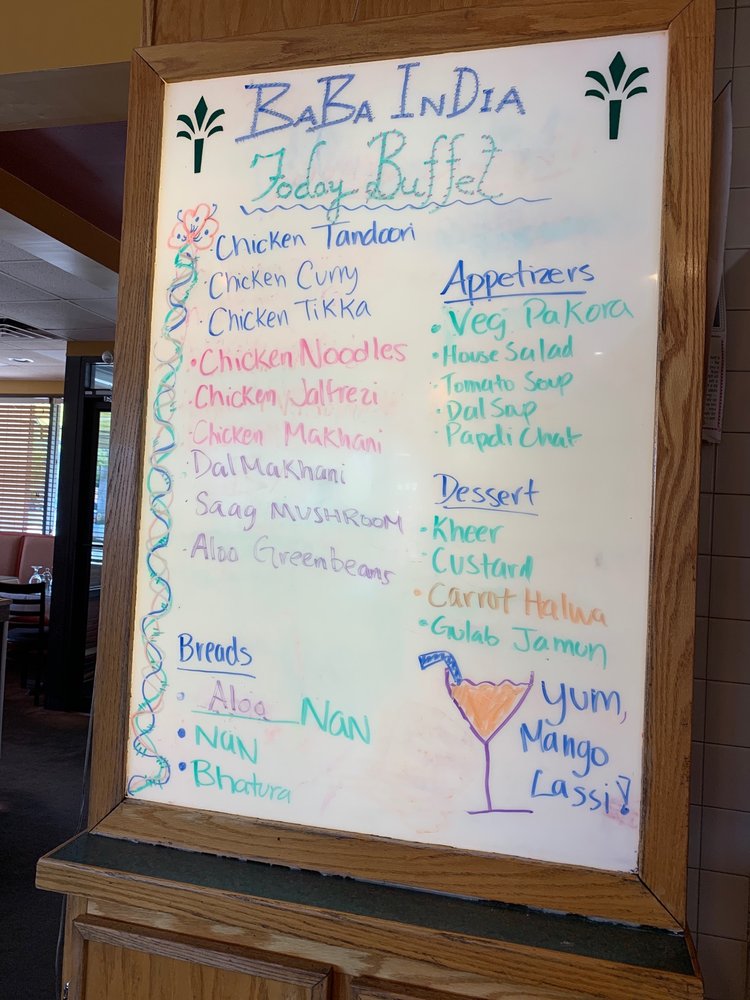 BaBa InDia
Today Buffet
Chicken Tandoori
Chicken Curry
Chicken Tikka
Chicken Noodles
Chicken Jalfrezi
Chicken Makhani
Dal Makhani
Saag MUSHROOM
Aloo Greenbeans
Breads
Aloo NaN
NaN
Bhatura
Appetizers
Veg Pakora
House Salad
Tomato Soup
Dal Soup
Papdi Chat
Dessert
Kheer
Custard
Carrot Halwa
Gulab Jamun
Yum,
Mango
Lassi!